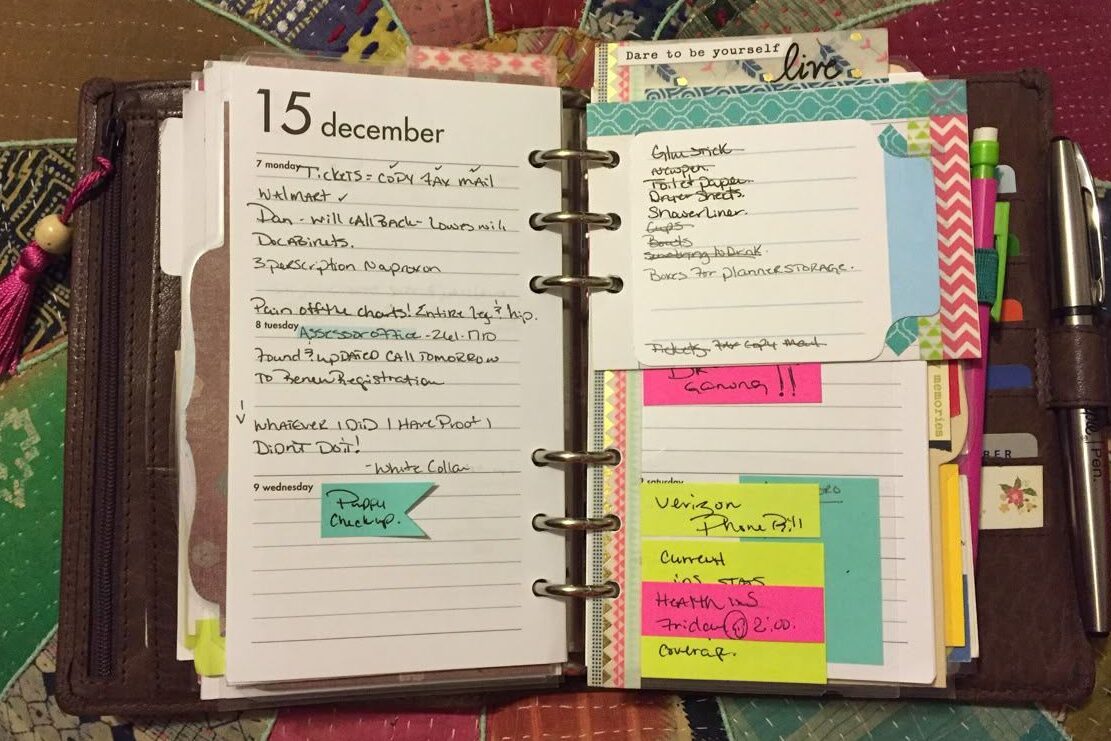 15 december
7 monday Tickets = Copy FAX MAIL
WALMART ✓
Dan - will call Back - Lowes will
Do CABinets.
3 perscription Naproxon
Pain off the charts! Entire leg & hip.
8 tuesday Assessor office - 241-1710
Found? UPDATED CALL TOMORROW
TO Renew Registration
WHATEVER I DiD I Have Proof I
Didn't Do it!
- White Collar
9 wednesday
Puppy
Checkup.
Dare to be yourself
live
Glue stick
Toilet Paper.
Dryer Sheets.
Shower Liner.
Cups
Bowls
Something to Drink.
Boxes For planner STORAGE.
Tickets. Fax Copy Mail
DR
Ganung !!
memories
saturday
Verizon
Phone Bill
Current
HEALTH INS
Friday @ 2:00.
Coverage.
BER
Pen.